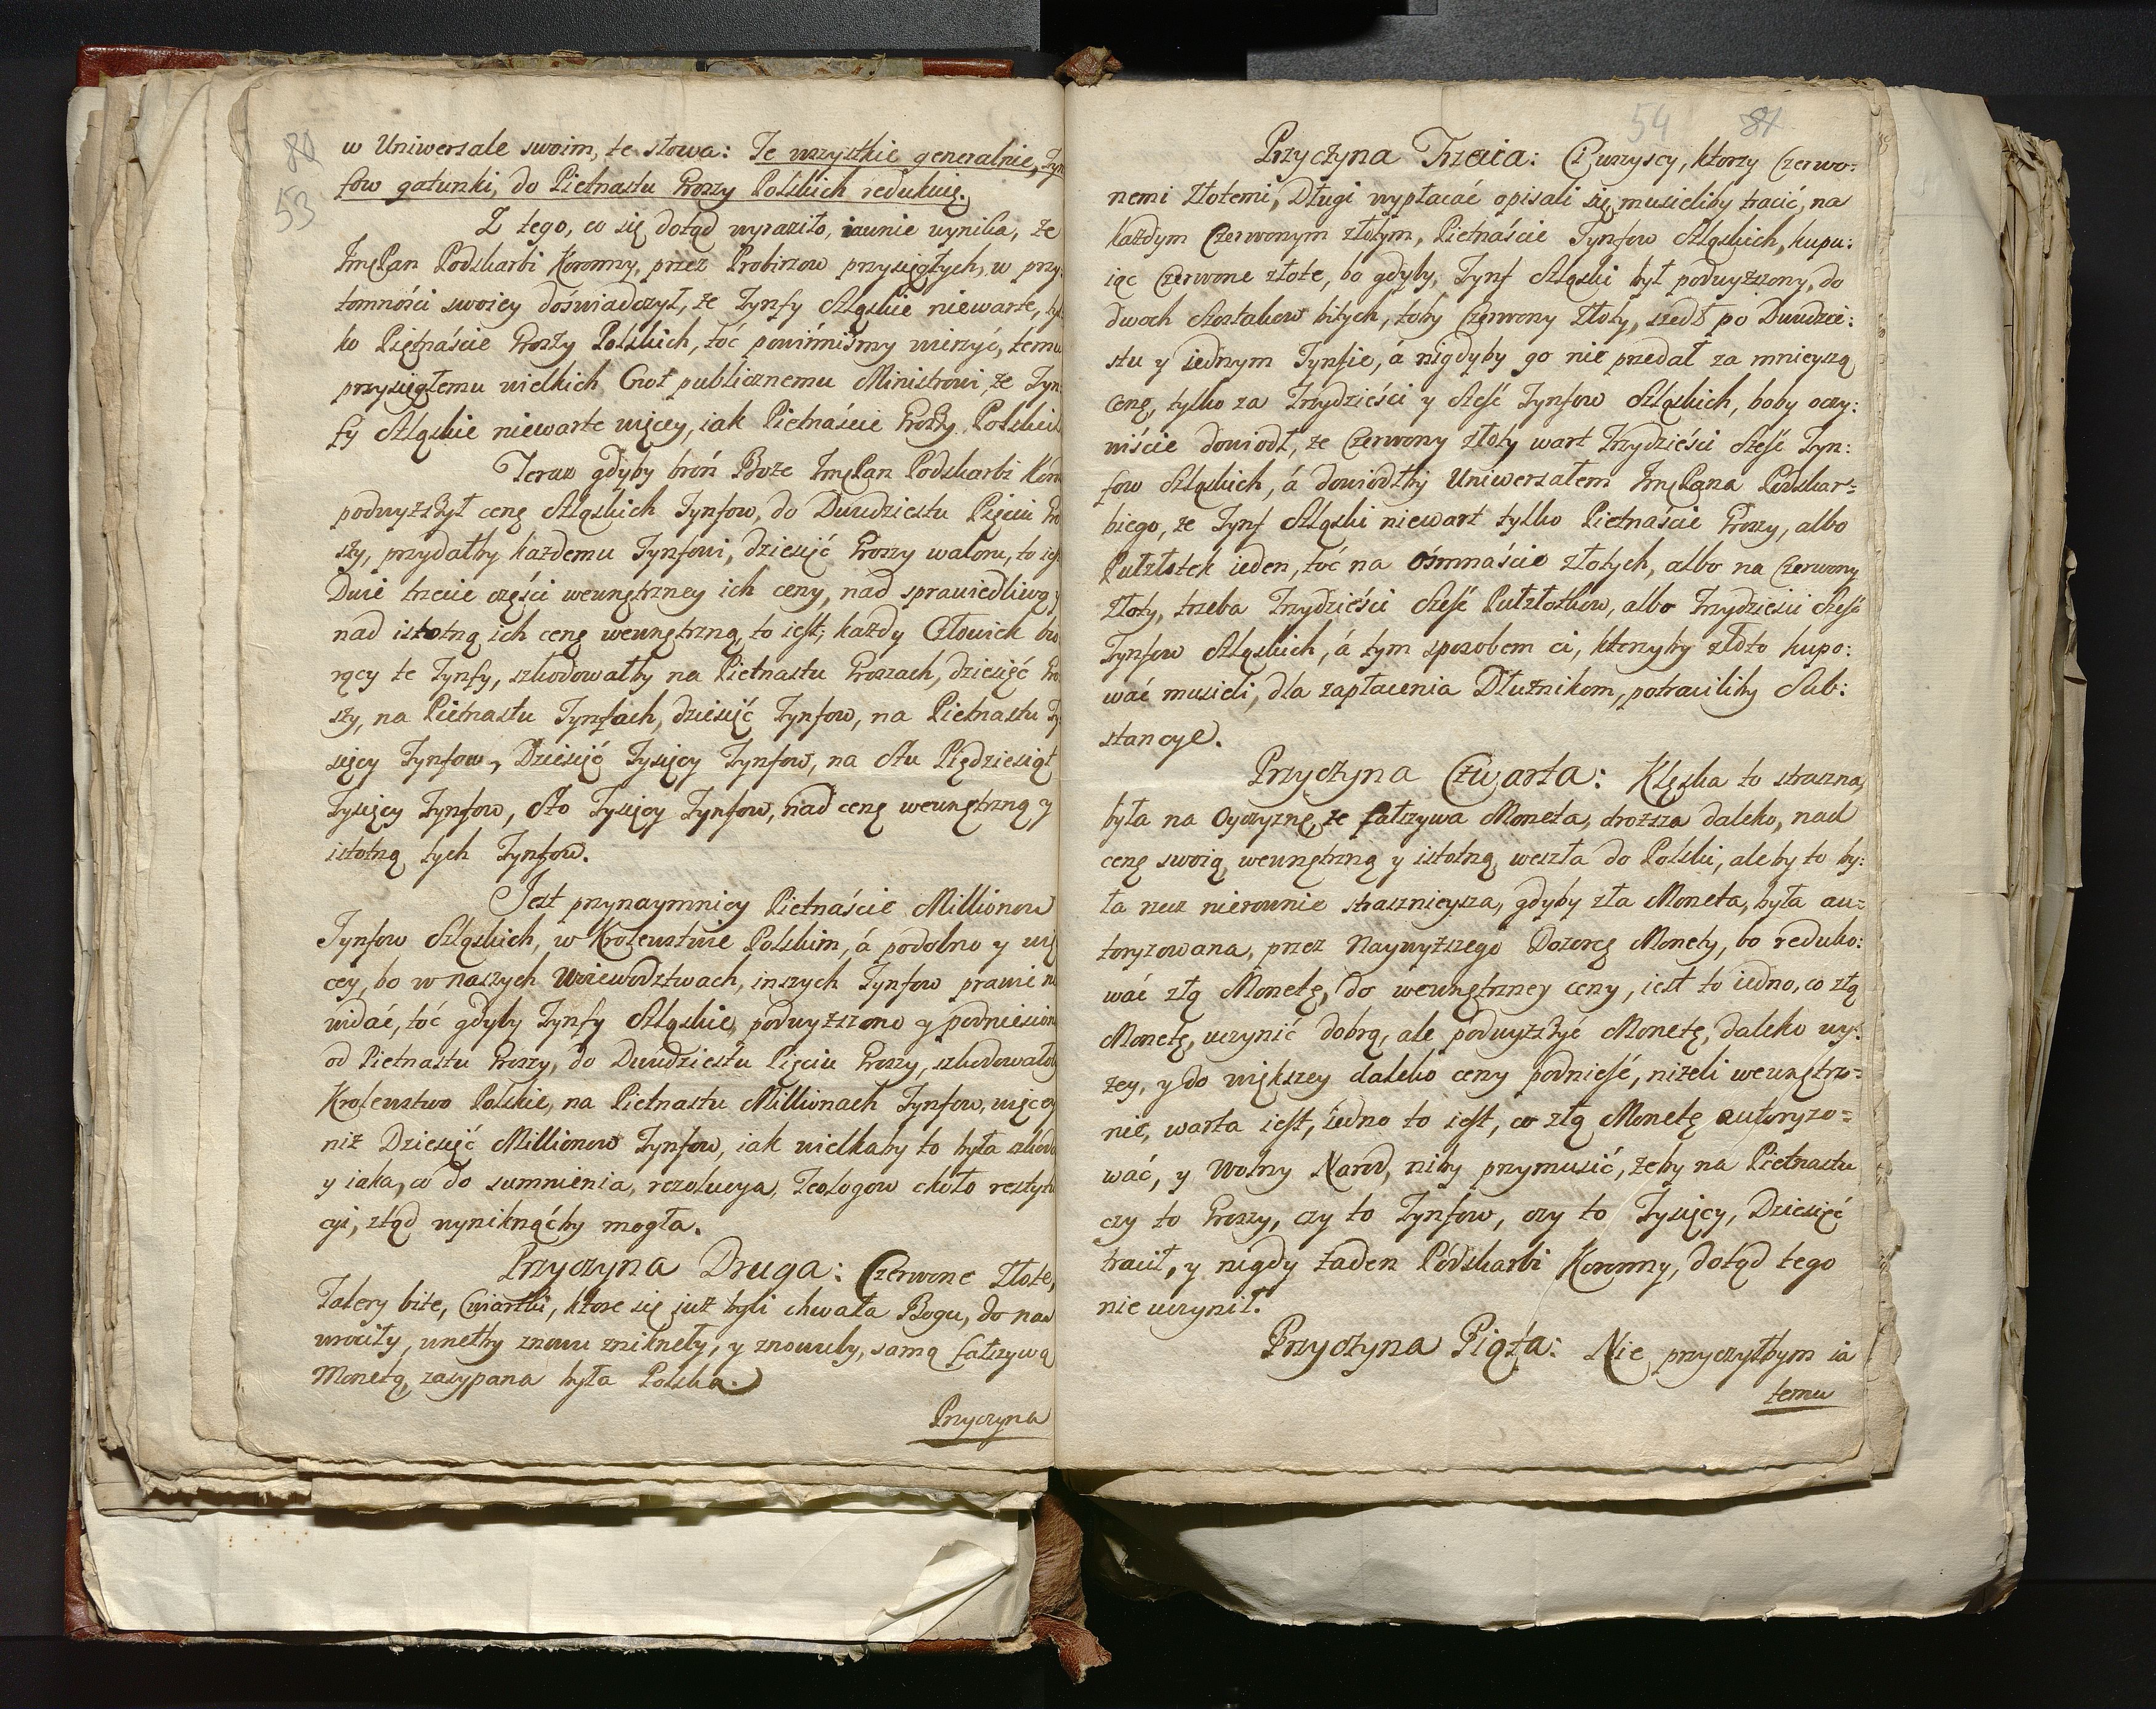 80
53
w Uniwersale swoim, te słowa: Te wszystkie generalnie, Tyn
fow gatunki, do Pietnastu Groszy Polskich redukuię.
Z tego, co się dotąd wyraziło, iawnie wynika, że
ImćPan Podskarbi Koronny, przez Probirzow przysięgłych, w przy
tomności swoiey doświadczył, że Tynfy Sląskie niewarte, tyl
ko Piętnaście Groszy Polskich, toć powinnismy wierzyć, temu
przysięgłemu wielkich Cnot publicznemu Ministrowi, że Tyn
fy Sląskie niewarte więcy, iak Pietnaście Groszy Polskich
Teraz gdyby broń Boże ImćPan Podskarbi Koro
podwyższył cenę Sląskich Tynfow, do Dwudziestu Pięciu Gro
szy, przydałby każdemu Tynfowi, dziesięć Groszy waloru, to iest
Dwie trzecie części wewnętrzney ich ceny, nad sprawiedliwą y
nad istotną ich cenę wewnętrzną, to iest, każdy Człowiek bio
rący te Tynfy, szkodowałby na Pietnastu Groszach, dziesięć Gro
szy, na Pietnastu Tynfach, dziesięć Tynfow, na Pietnastu Ty
sięcy Tynfow, Dziesięć Tysięcy Tynfow, na Stu Piędziesiąt
Tysięcy Tynfow, Sto Tysięcy Tynfow, nad cenę wewnętrzną y
istotną tych Tynfow.
Jest przynaymniey Pietnaście Millionow
Tynfow Sląskich, w Krolewstwie Polskim, á podobno y wię
cey, bo w naszych Woiewodztwach, inszych Tynfow prawie nie
widać, toć gdyby Tynfy Sląskie, podwyższono y podniesiono
od Pietnastu Groszy, do Dwudziestu Pięciu Groszy, szkodowałoby
Krolewstwo Polskie, na Pietnastu Millionach Tynfow, więcey
niż Dziesięć Millionow Tynfow, iak wielkaby to była szkoda
y iaka, co do sumnienia, rezolucya, Teologow około restytu
cyi, ztąd wyniknąćby mogła.
Przyczyna Druga: Czerwone Złote,
Talery bite, Cwiartki, ktore się już byli chwała Bogu, do nas
wrociły, wnetby znowu zniknęły, y znowuby, samą fałszywą
Monetą, zasypana była Polska.
Przyczyna
54 81
Przyczyna Trzecia: Ci wszyscy, ktorzy Czerwo:
nemi Złotemi, Długi wypłacać opisali się, musieliby tracić, na
każdym Czerwonym złotym, Pietnaście Tynfow Sląskich, kupu:
iąc Czerwone złote, bo gdyby, Tynf Sląski był podwyższony, do
dwoch Szostakow bitych, toby Czerwony Złoty, szedł po Dwudzie:
stu y iednym Tynfie, á nigdyby go nie przedał za mnieyszą
cenę, tylko za Trzydzieści y Sześć Tynfow Sląskich, boby oczy:
wiście dowiodł, że Czerwony złoty wart Trzydzieści Sześć Tyn:
fow Sląskich, á dowiodłby Uniwersałem ImćPana Podskar=
biego, że Tynf Sląski niewart tylko Pietnaście Groszy, albo
Pułzłotek ieden, toć na Ośmnaście złotych, albo na Czerwony
Złoty, trzeba Trzydzieści Sześć Pułzłotkow, albo Trzydzieści Sześć
Tynfow Sląskich, á tym sposobem ci, ktorzyby złoto kupo:
wać musieli, dla zapłacenia Dłużnikom, potraciliby Sub:
stancye.
Przyczyna Czwarta: Klęska to straszna,
była na Oyczyznę, że fałszywa Moneta, droższa daleko, nad
cenę swoią, wewnętrzną y istotną, weszła do Polski, ale by to by:
ła rzecz nierownie strasznieysza, gdyby zła Moneta, była au=
toryzowana, przez Naywyższego Dozorcę Monety, bo reduko:
wać złą Monetę, do wewnętrzney ceny, iest to iedno, co złą
Monetę, uczynić dobrą, ale podwyższyć Monetę, daleko wy:
żey, y do większey daleko ceny podnieść, niżeli wewnętrz=
nie, warta iest, iedno to iest, co złą Monetę autoryzo=
wać, y Wolny Narod, niby przymusić, żeby na Pietnastu
czy to Groszy, czy to Tynfow, czy to Tysięcy, Dziesięć
tracił, y nigdy żaden Podskarbi Koronny, dotąd tego
nie uczynił.
Przyczyna Piąta: Nie przyczyłbym ia
temu